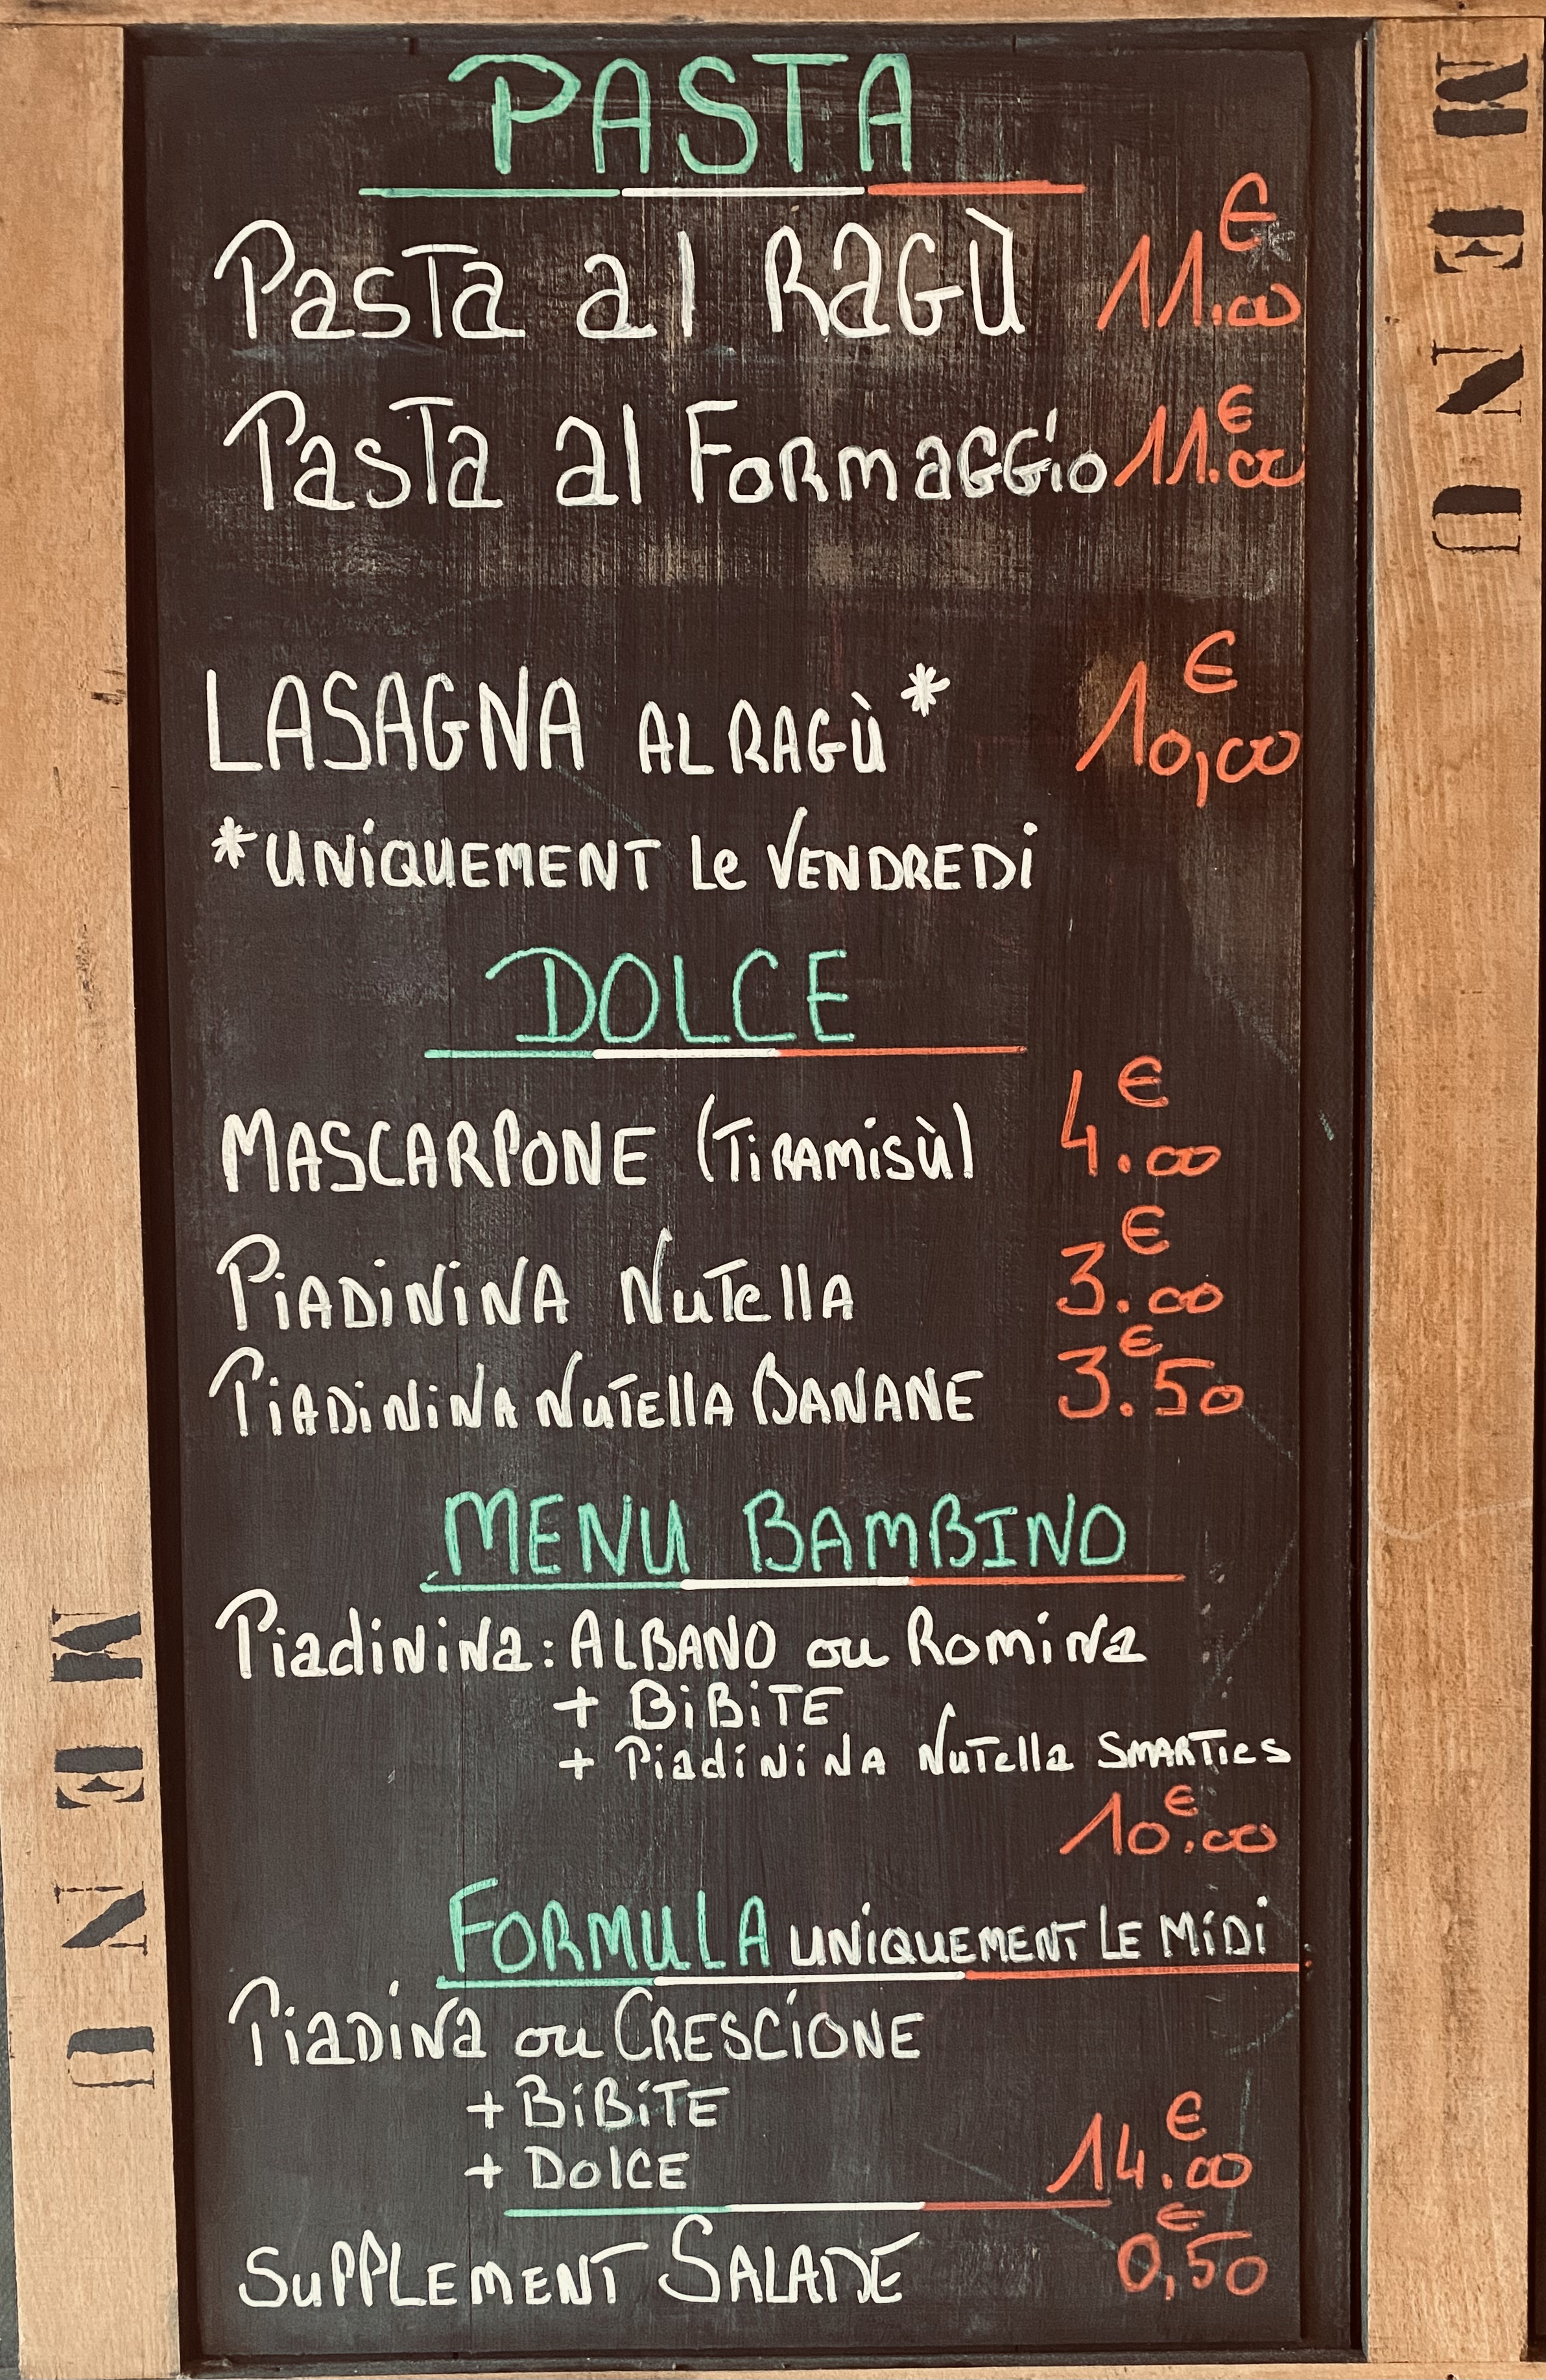 PASTA
Pasta al RAGÙ 11.00€
Pasta al FORMAGGIO 11.00€
LASAGNA AL RAGÙ* 10,00€
*UNIQUEMENT Le VENDREDI
DOLCE
MASCARPONE (TIRAMISÙ) 4.00€
PIADININA NUTELLA 3.00€
PIADININA NUTELLA BANANE 3.50€
MENU BAMBINO
Piadinina: ALBANO ou Romina
+ BIBITE
+ Piadinina Nutella SMARTIES
10.00€
FORMULA UNIQUEMENT LE MIDI
PIADINA ou CRESCIONE
+ BIBITE
+ DOLCE 14.00€
SUPPLEMENT SALADE 0,50€
MENU
MENU